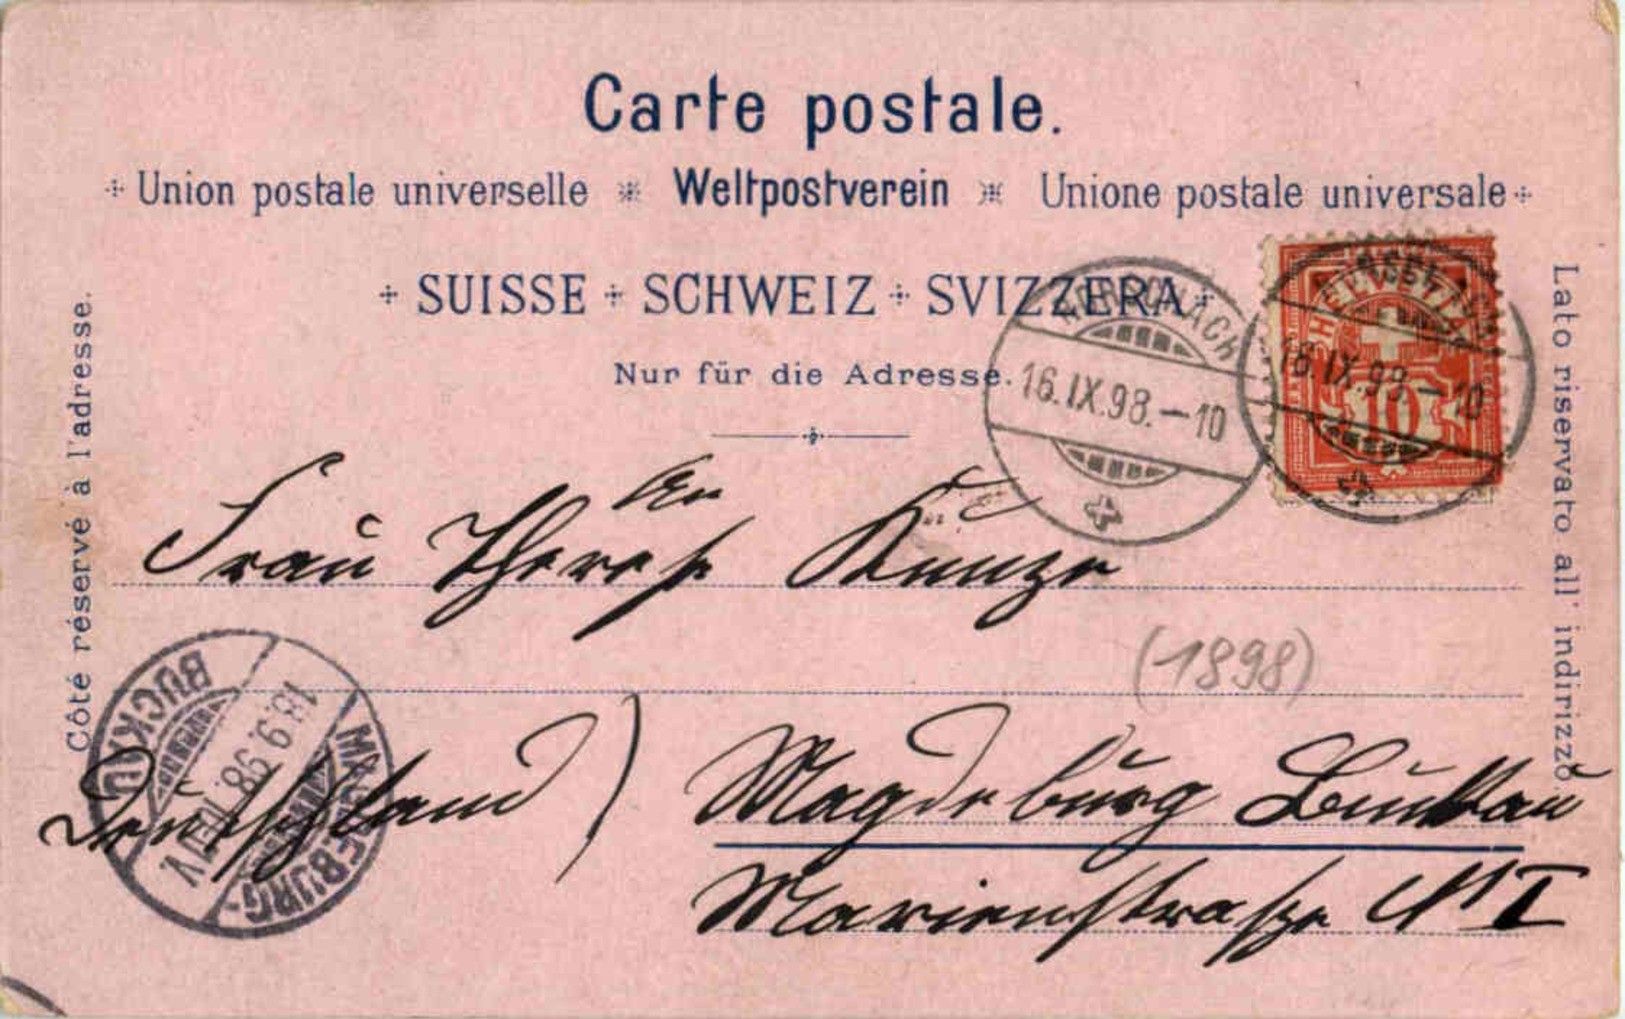 Carte postale.
Union postale universelle Weltpostverein Unione postale universale
SUISSE SCHWEIZ SVIZZERA
Nur für die Adresse.
Côté réservé à l'adresse.
Lato riservato all' indirizzo.
16.IX.98.–10
16.IX.98.–10
HELVETIA
10
An
Frau Therese Kunze
(1898)
Deutschland) Magdeburg Buckau
Marienstraße № I
MAGDEBURG-
BUCKAU
18.9.98. V.